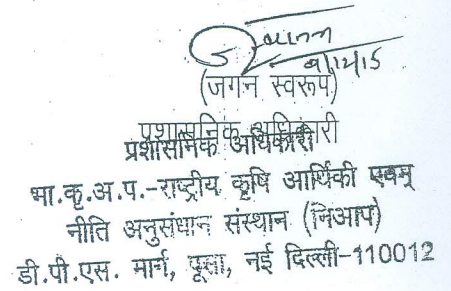 9/12/15
(जगन स्वरूप)
प्रशासनिक अधिकारी
प्रशासनिक अधिकारी
भा.कृ.अ.प.-राष्ट्रीय कृषि आर्थिकी एवम्
नीति अनुसंधान संस्थान (निआप)
डी.पी.एस. मार्ग, पूसा, नई दिल्ली-110012